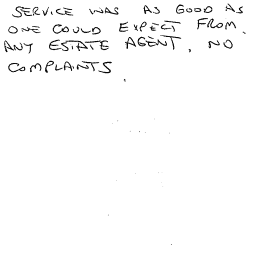 SERVICE WAS AS GOOD AS
ONE COULD EXPECT FROM
ANY ESTATE AGENT, NO
COMPLAINTS.